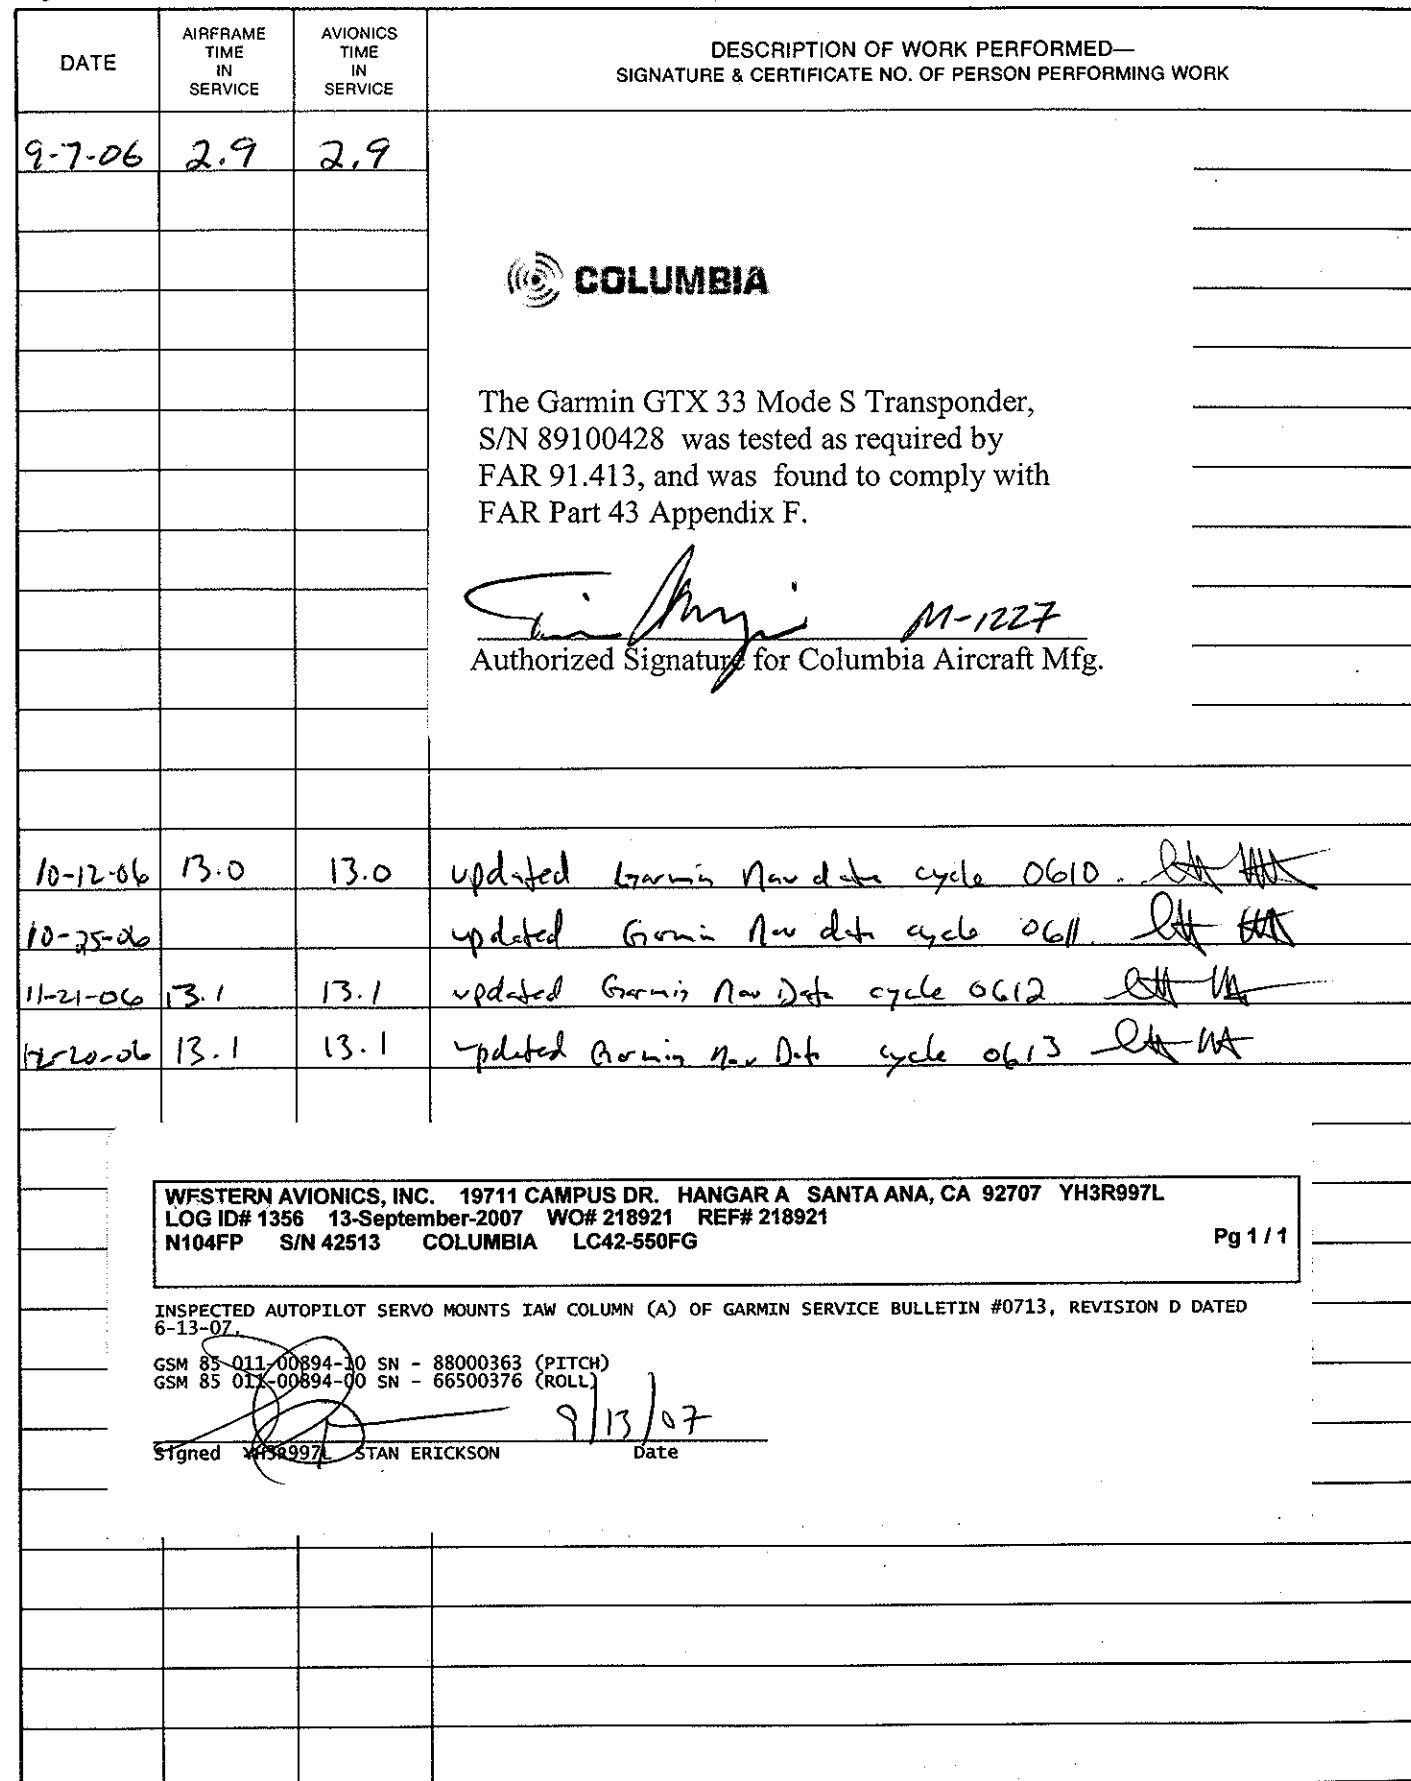 DATE
AIRFRAME
TIME
IN
SERVICE
AVIONICS
TIME
IN
SERVICE
DESCRIPTION OF WORK PERFORMED—
SIGNATURE & CERTIFICATE NO. OF PERSON PERFORMING WORK
9-7-06 2.9 2.9
COLUMBIA
The Garmin GTX 33 Mode S Transponder,
S/N 89100428 was tested as required by
FAR 91.413, and was found to comply with
FAR Part 43 Appendix F.
M-1227
Authorized Signature for Columbia Aircraft Mfg.
10-12-06 13.0 13.0 updated Garmin Nav data cycle 0610.
10-25-06 updated Garmin Nav data cycle 0611.
11-21-06 13.1 13.1 updated Garmin Nav Data cycle 0612
12-20-06 13.1 13.1 updated Garmin Nav Data cycle 0613
WESTERN AVIONICS, INC. 19711 CAMPUS DR. HANGAR A SANTA ANA, CA 92707 YH3R997L
LOG ID# 1356 13-September-2007 WO# 218921 REF# 218921
N104FP S/N 42513 COLUMBIA LC42-550FG Pg 1 / 1
INSPECTED AUTOPILOT SERVO MOUNTS IAW COLUMN (A) OF GARMIN SERVICE BULLETIN #0713, REVISION D DATED
6-13-07.
GSM 85 011-00894-10 SN - 88000363 (PITCH)
GSM 85 011-00894-00 SN - 66500376 (ROLL)
9/13/07
Signed YH3R997L STAN ERICKSON Date